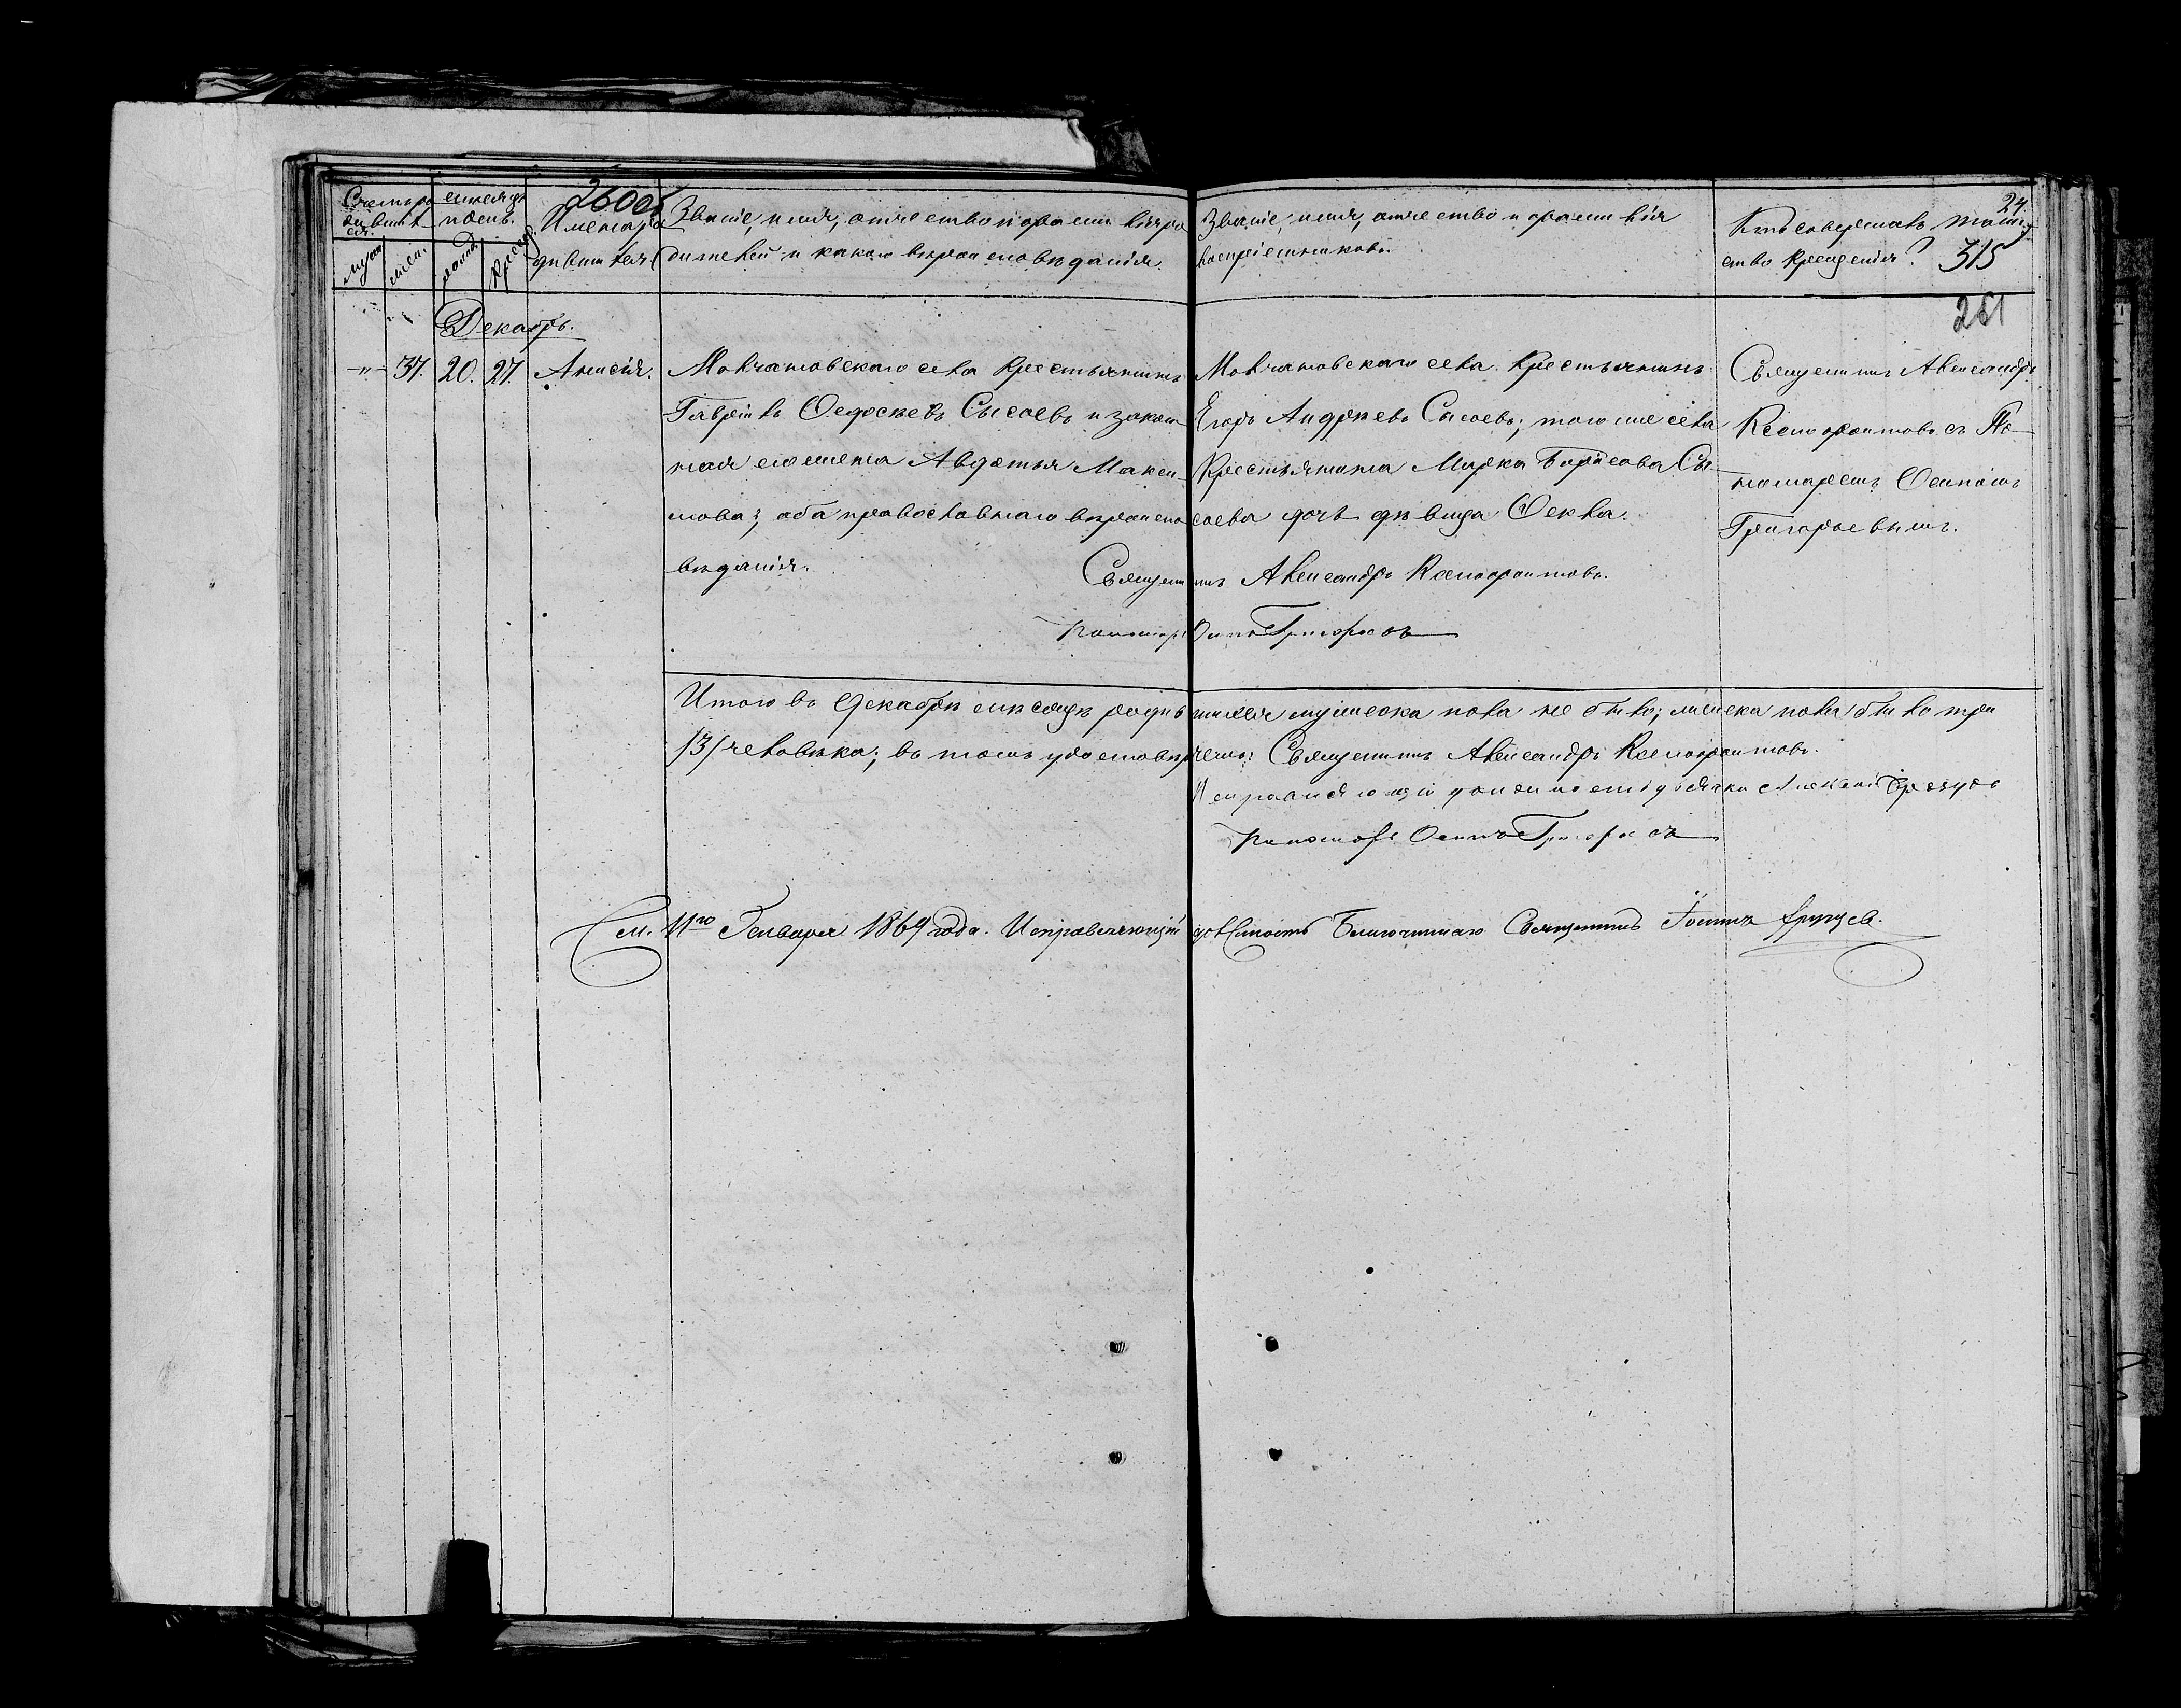 Счетъ ро
дившых
ся.
муж:
жен:
месяцъ
и день.
рожд.
Крещ.
260об
Имена ро
дившихся
Званіе, имя, отчество и фамилія ро
дителей и какого вѣроисповѣданія.
Званіе, имя, отчество и фамилія
воспріемниковъ.
24.
Кто совершалъ таин
ство Крещенія? 315
261
Декабрь.
-"- 37. 20. 27. Анисія.
Молчановскаго села Крестьянинъ
Гаврiилъ Ѳедосѣевъ Сысоевъ и закон
ная его жена Авдотья Макси
мова; оба православнаго вѣроиспо
вѣданія.
Молчановскаго села Крестьянинъ
Егоръ Андрѣевъ Сысоевъ; того же села
Крестьянина Марка Борисова Сы
соева дочь дѣвица Ѳекла.
Священникъ Александръ
Ксенофонтовъ съ По
номаремъ Осипомъ
Григорьевымъ.
Священникъ Александръ Ксенофонтовъ.
Пономарь Осипъ Григорьевъ
Итого въ Декабрѣ месяцѣ родившихся мужеска пола не было; женска пола было три
/3/ человѣка; въ томъ удостовѣряемъ: Священникъ Александръ Ксенофонтовъ.
Исправляющій должность дьячка Алексей
Пономарь Осипъ Григорьевъ
См. 11го Генваря 1869 года. Исправляющій должность Благочиннаго Священникъ Іоаннъ